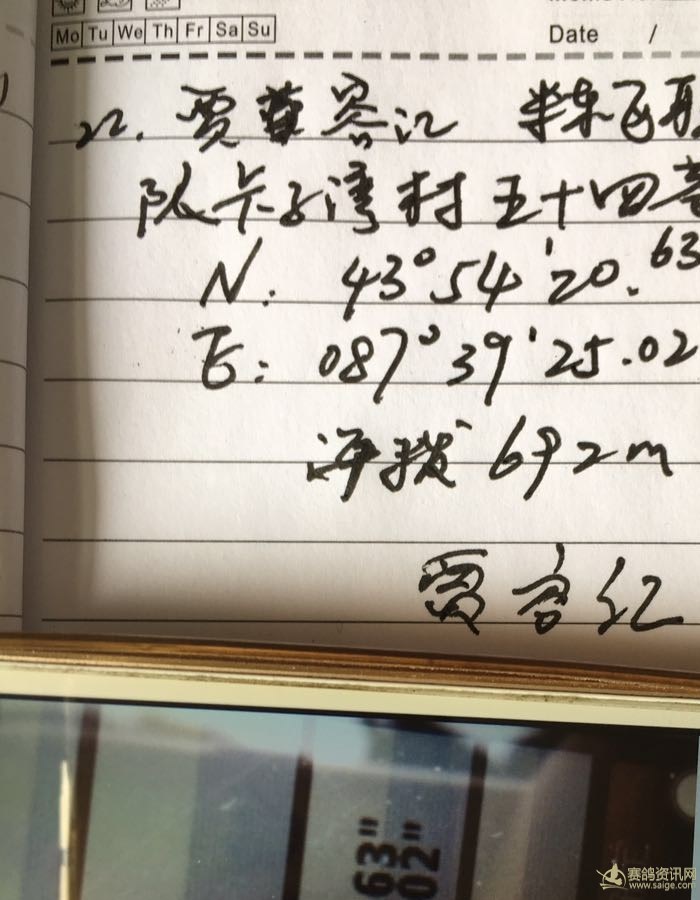 Mo Tu We Th Fr Sa Su
Date /
22. 贾 容江
队卡子湾村五十四
N: 43°54'20.63
E: 087°39'25.02
海拔 692m
贾容江
63"
02"
赛鸽资讯网
www.saige.com